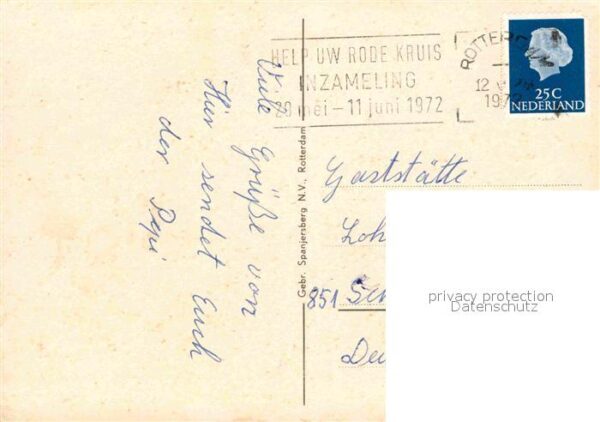 HELP UW RODE KRUIS
INZAMELING
20 mei - 11 juni 1972
ROTTERDAM
12
1972
25 C
NEDERLAND
Viele Grüße von
Hier sendet Euch
der Pepi
Gebr. Spanjersberg N.V., Rotterdam
Gaststätte
Loh
851
Deu
privacy protection
Datenschutz